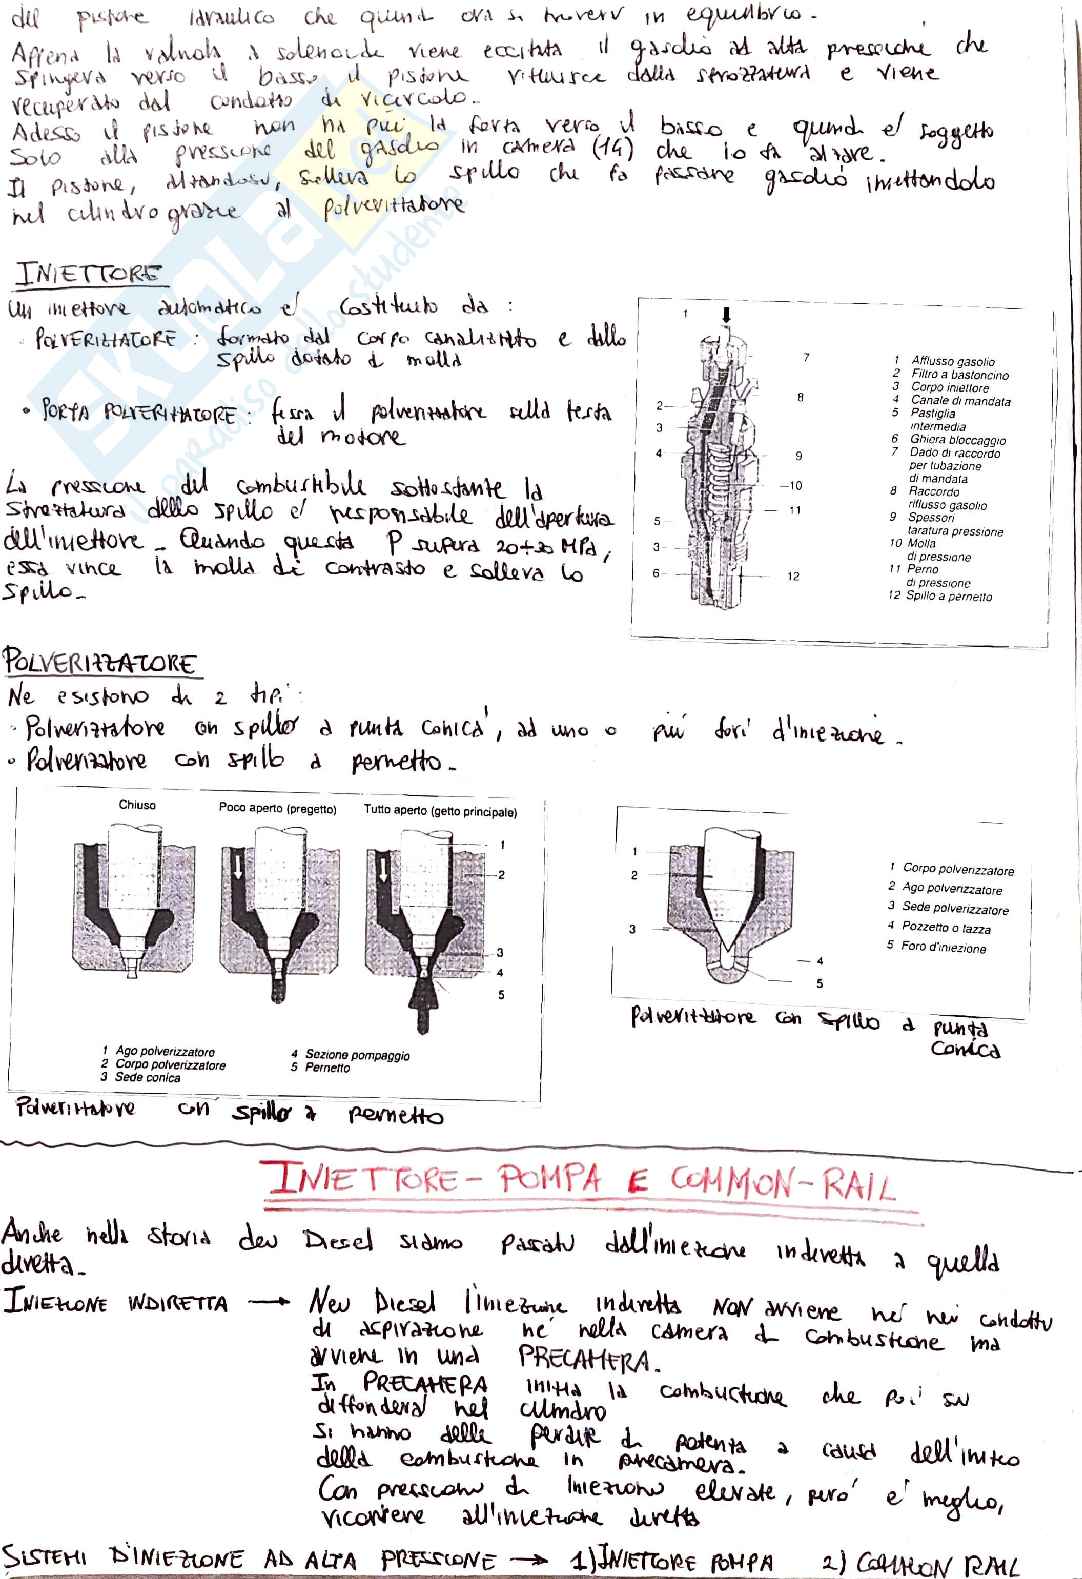 del pistone idraulico che quindi ora si troverà in equilibrio.
Appena la valvola a solenoide viene eccitata il gasolio ad alta pressione che
spingeva verso il basso il pistone rifluisce dalla strozzatura e viene
recuperato dal condotto di ricircolo.
Adesso il pistone non ha più la forza verso il basso e quindi e' soggetto
solo alla pressione del gasolio in camera (14) che lo fa alzare.
Il pistone, alzandosi, solleva lo spillo che fa passare gasolio iniettandolo
nel cilindro grazie al polverizzatore
INIETTORE
Un iniettore automatico e' costituito da :
· POLVERIZZATORE : formato dal corpo canalizzato e dallo
spillo dotato di molla
• PORTA POLVERIZZATORE : fissa il polverizzatore sulla testa
del motore
La pressione del combustibile sottostante la
strozzatura dello spillo e' responsabile dell'apertura
dell'iniettore. Quando questa P supera 20÷30 MPa,
essa vince la molla di contrasto e solleva lo
spillo.
1
7
8
2
3
4
9
10
11
5
3
6
12
1 Afflusso gasolio
2 Filtro a bastoncino
3 Corpo iniettore
4 Canale di mandata
5 Pastiglia
intermedia
6 Ghiera bloccaggio
7 Dado di raccordo
per tubazione
di mandata
8 Raccordo
riflusso gasolio
9 Spessori
taratura pressione
10 Molla
di pressione
11 Perno
di pressione
12 Spillo a pernetto
POLVERIZZATORE
Ne esistono di 2 tipi:
· Polverizzatore con spillo a punta conica, ad uno o più fori d'iniezione.
• Polverizzatore con spillo a pernetto.
Chiuso
Poco aperto (pregetto)
Tutto aperto (getto principale)
1
2
3
4
5
1 Ago polverizzatore
2 Corpo polverizzatore
3 Sede conica
4 Sezione pompaggio
5 Pernetto
Polverizzatore con spillo a pernetto
1
2
3
4
5
1 Corpo polverizzatore
2 Ago polverizzatore
3 Sede polverizzatore
4 Pozzetto o tazza
5 Foro d'iniezione
Polverizzatore con spillo a punta
conica
INIETTORE - POMPA E COMMON-RAIL
Anche nella storia dei Diesel siamo passati dall'iniezione indiretta a quella
diretta.
INIEZIONE INDIRETTA → Nei Diesel l'iniezione indiretta NON avviene ne' nei condotti
di aspirazione ne' nella camera di combustione ma
avviene in una PRECAMERA.
In PRECAMERA inizia la combustione che poi si
diffonderà nel cilindro
Si hanno delle perdite di potenza a causa dell'inizio
della combustione in precamera.
Con pressioni di iniezioni elevate, pero' e' meglio,
ricorrere all'iniezione diretta
SISTEMI D'INIEZIONE AD ALTA PRESSIONE → 1) INIETTORE POMPA 2) COMMON RAIL
SKUOLA.net
il paradiso dello studente